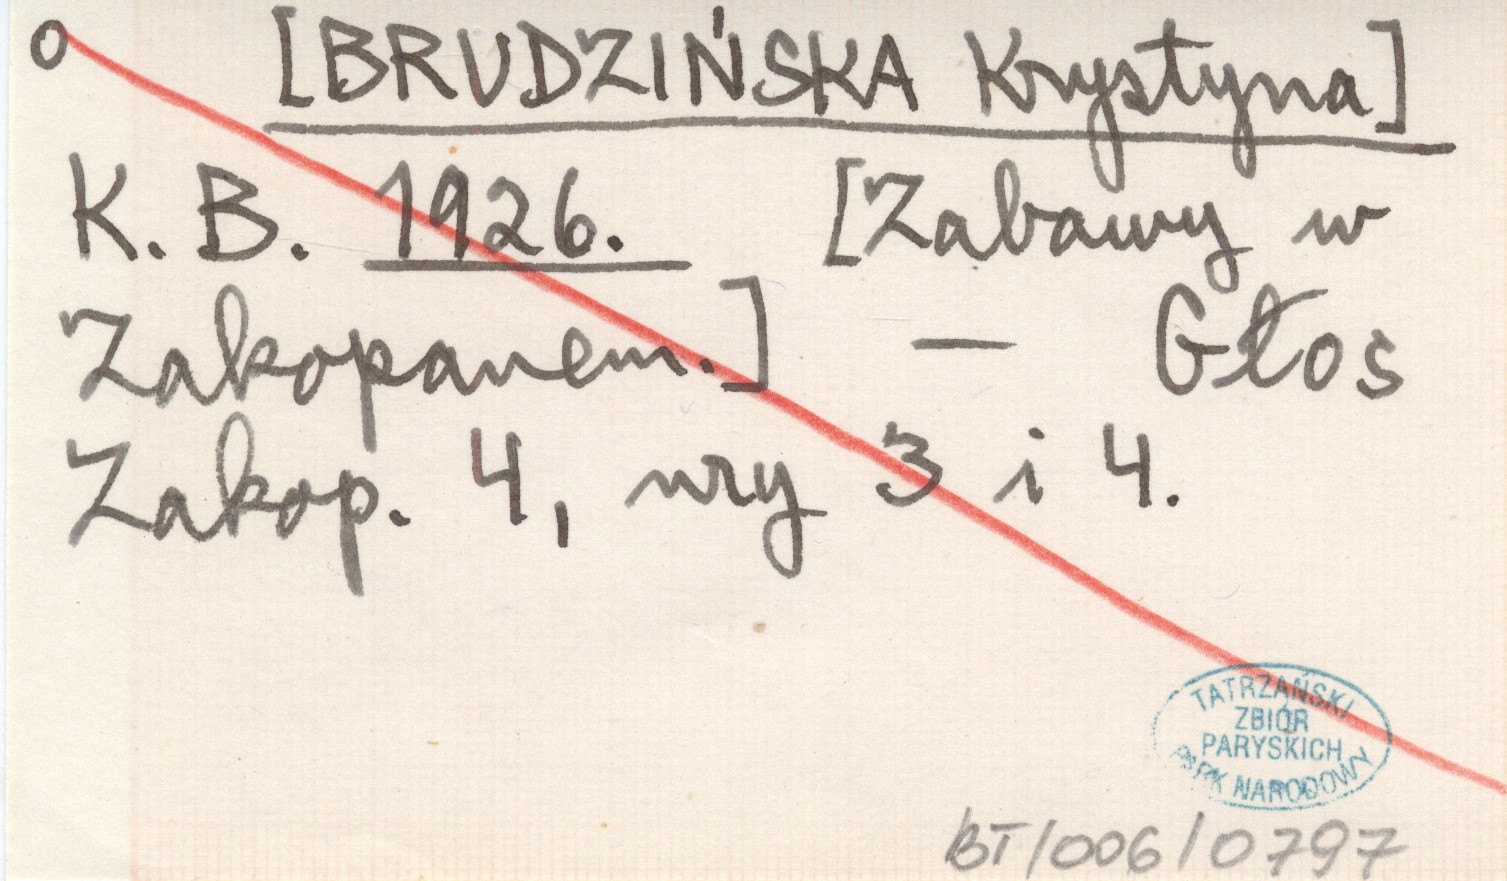 o [BRUDZIŃSKA Krystyna]
K. B. 1926. [Zabawy w
Zakopanem.] — Głos
Zakop. 4, nry 3 i 4.
TATRZAŃSKI
ZBIÓR
PARYSKICH
PARK NARODOWY
BT/006/0797